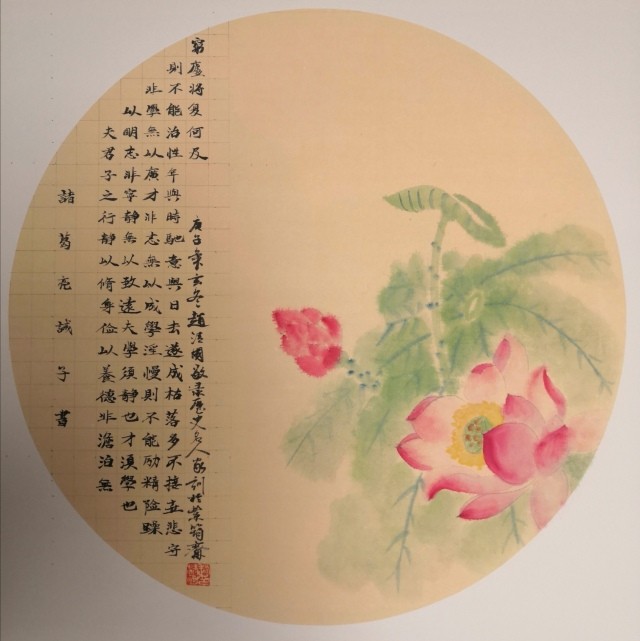 諸葛亮誡子書
夫君子之行靜以脩身儉以養德非澹泊無
以明志非寧靜無以致遠夫學須靜也才須學也
非學無以廣才非志無以成學淫慢則不能励精險躁
則不能治性年與時馳意與日去遂成枯落多不接世悲守
窮廬將复何及
庚子年玄冬趙國敬錄歷史名人家訓於筠齋